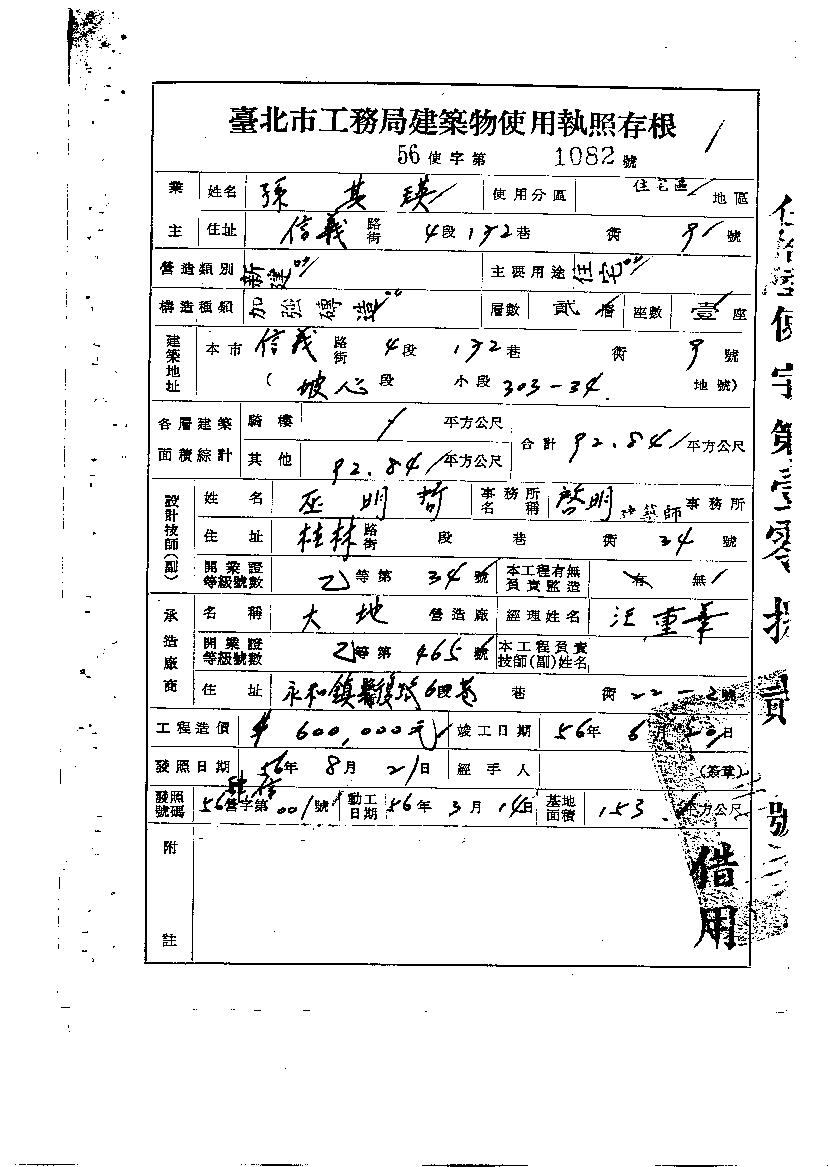 臺北市工務局建築物使用執照存根
56使字第 1082 號
業主 姓名 孫其瑛 使用分區 住宅區 地區
住址 信義路街 4段 192巷 衖 9 號
營造類別 新建 主要用途 住宅
構造種類 加強磚造 層數 貳層 座數 壹座
建築地址 本市 信義路街 4段 192巷 衖 9 號
(坡心段 小段 303-34 地號)
各層建築面積綜計 騎樓 / 平方公尺 合計 92.84 平方公尺
其他 92.84 平方公尺
設計技師(副) 姓名 巫明哲 事務所名稱 啓明建築師事務所
住址 桂林路街 段 巷 衖 34 號
開業證等級號數 乙等第 34 號 本工程有無負責監造 有 無
承造廠商 名稱 大地營造廠 經理姓名 汪重華
開業證等級號數 乙等第 465 號 本工程負責技師(副)姓名
住址 永和鎮 路 6段 巷 衖 22-2號
工程造價 $ 600,000元 竣工日期 56年 6月 20日
發照日期 56年 8月 21日 經手人 (簽章)
發照號碼 56營字第 001號 動工日期 56年 3月 14日 基地面積 153. 平方公尺
附註
借用
使字第壹零捌貳號